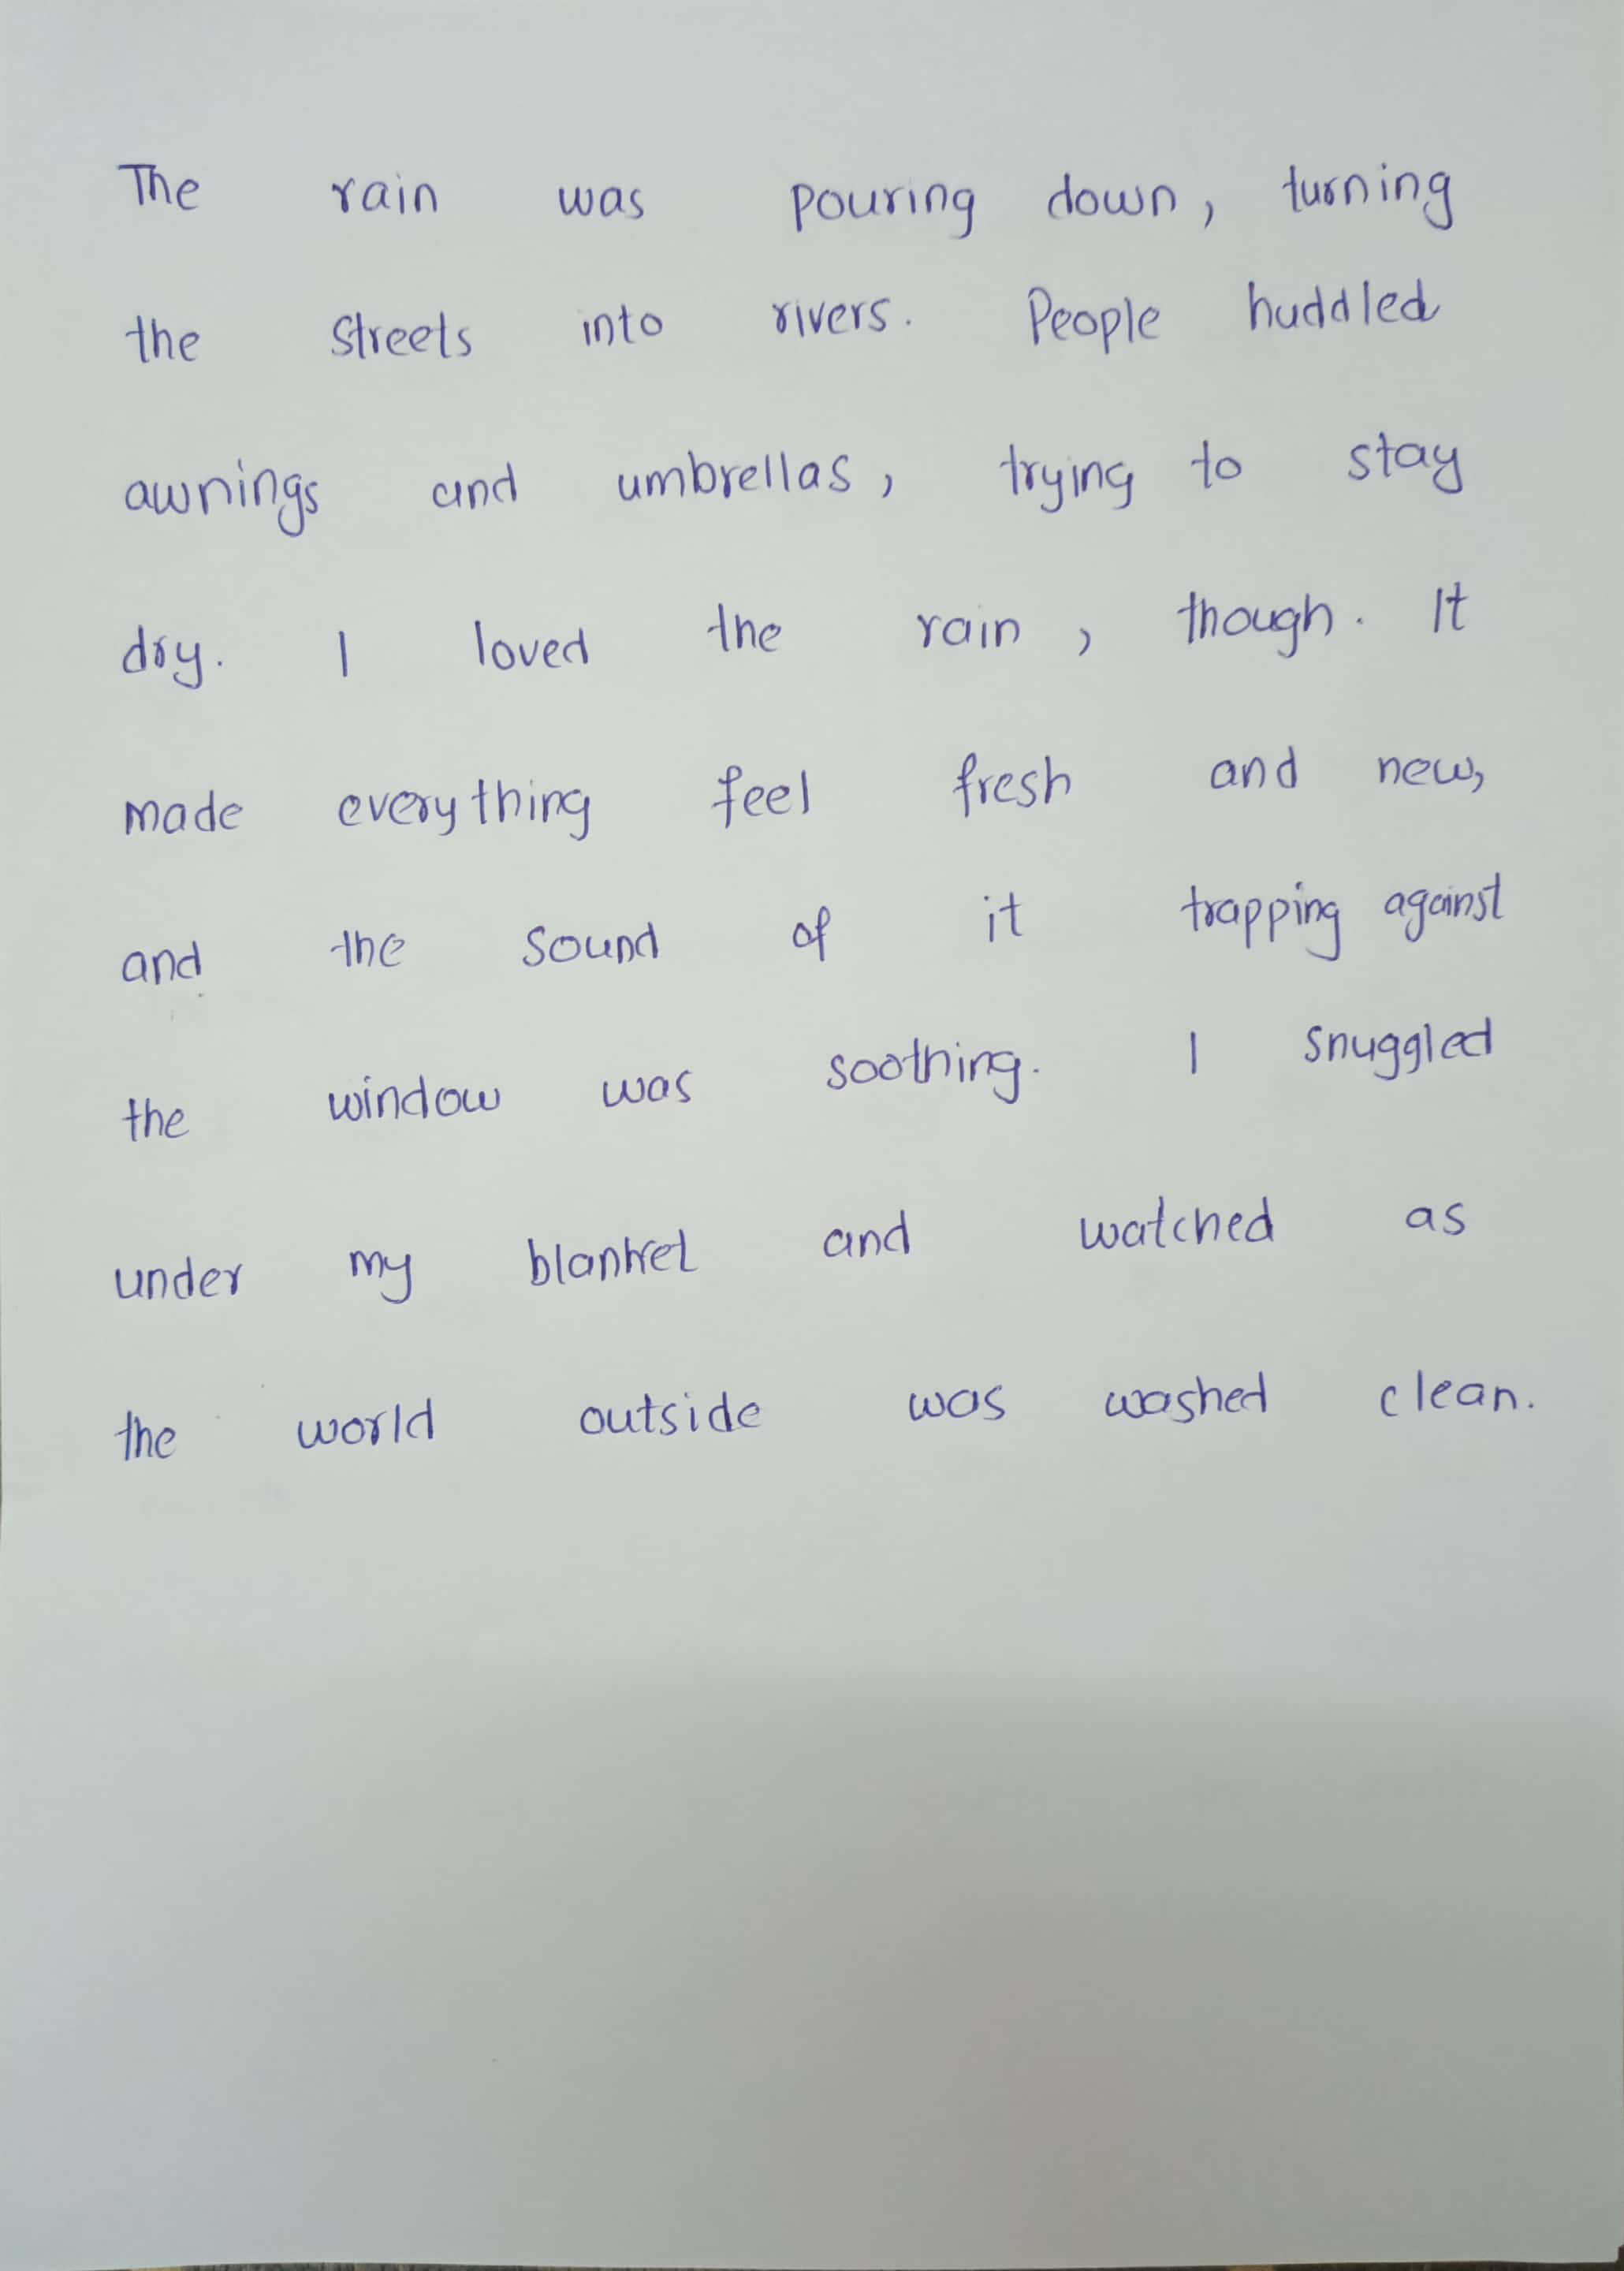 The rain was pouring down, turning
the streets into rivers. People huddled
awnings and umbrellas, trying to stay
dry. I loved the rain, though. It
made everything feel fresh and new,
and the sound of it trapping against
the window was soothing. I snuggled
under my blanket and watched as
the world outside was washed clean.